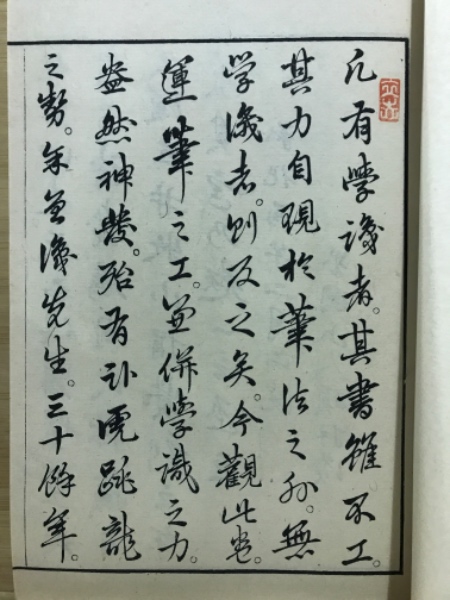 凡有學識者。其書雖不工。
其力自現於筆法之外。無
学識者。則反之矣。今觀此卷。
運筆之工。併學識之力。
盎然神發。殆有臥虎跳龍
之勢。余識先生。三十餘年。